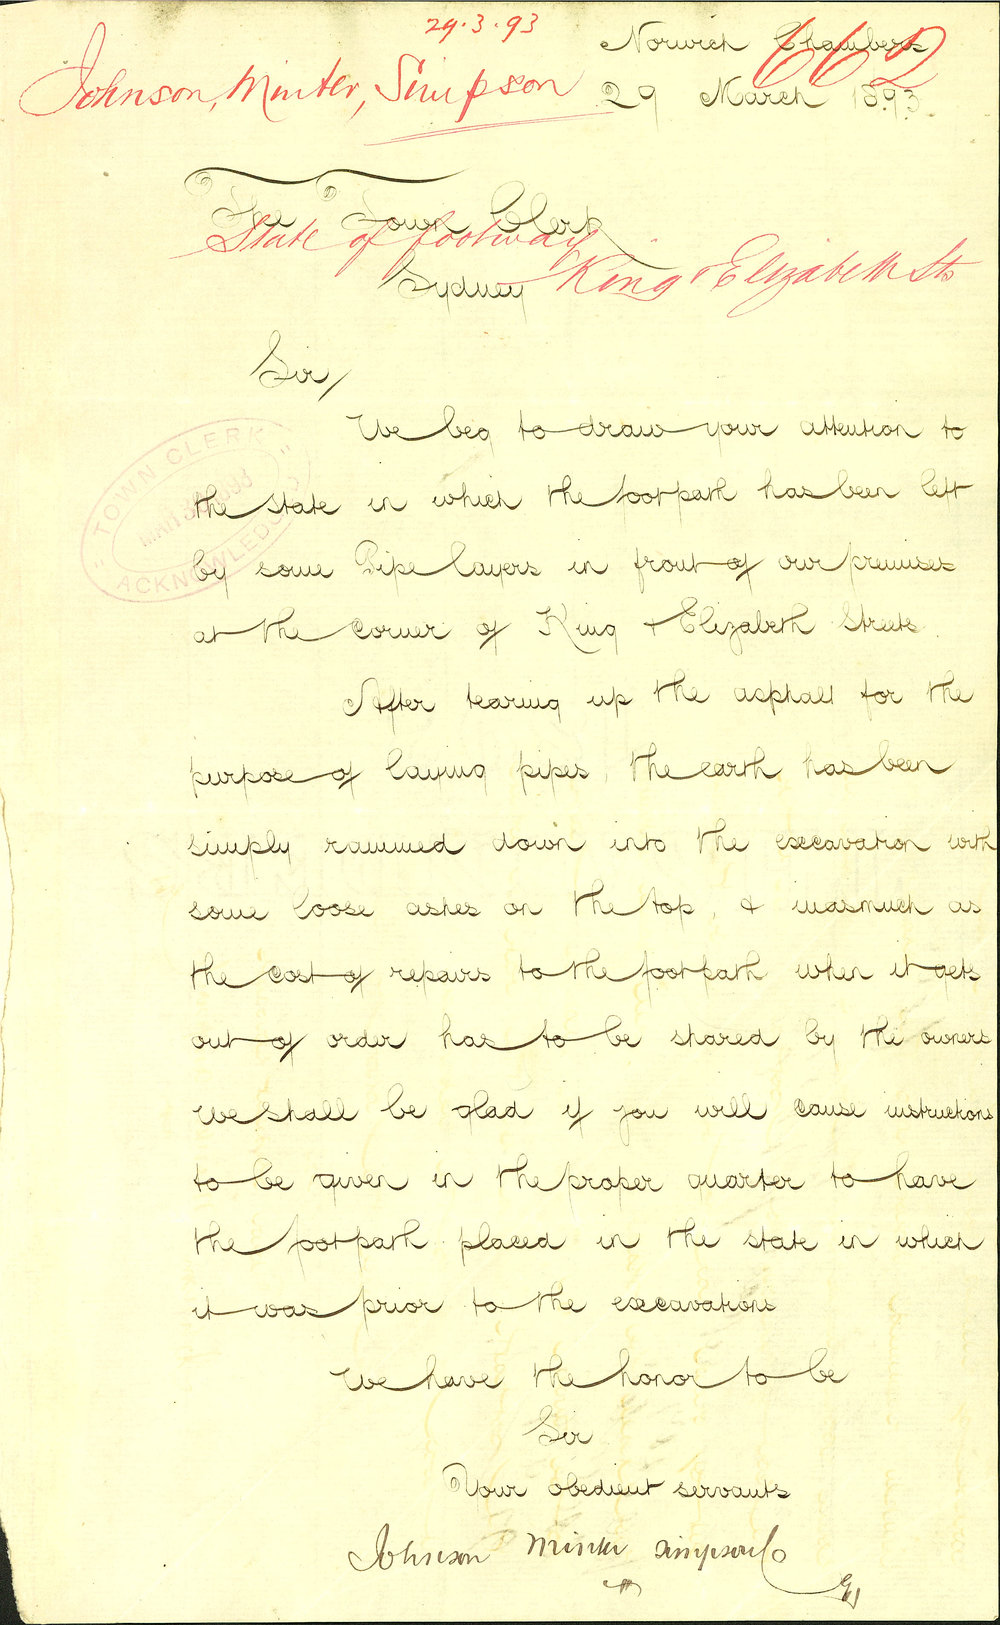 29.3.93
Norwich Chambers
662
Johnson, Minter, Simpson
29 March 1893
The Town Clerk
State of footway
King & Elizabeth Sts
Sydney
Sir/
We beg to draw your attention to
the state in which the footpath has been left
by some Pipe layers in front of our premises
at the corner of King & Elizabeth Streets
After tearing up the asphalt for the
purpose of laying pipes, the earth has been
simply rammed down into the excavation with
some loose ashes on the top, & inasmuch as
the cost of repairs to the footpath when it gets
out of order has to be shared by the owners
we shall be glad if you will cause instructions
to be given in the proper quarter to have
the footpath placed in the state in which
it was prior to the excavations
We have the honor to be
Sir
Your obedient servants
Johnson Minter Simpson Co
"TOWN CLERK"
ACKNOWLEDGED